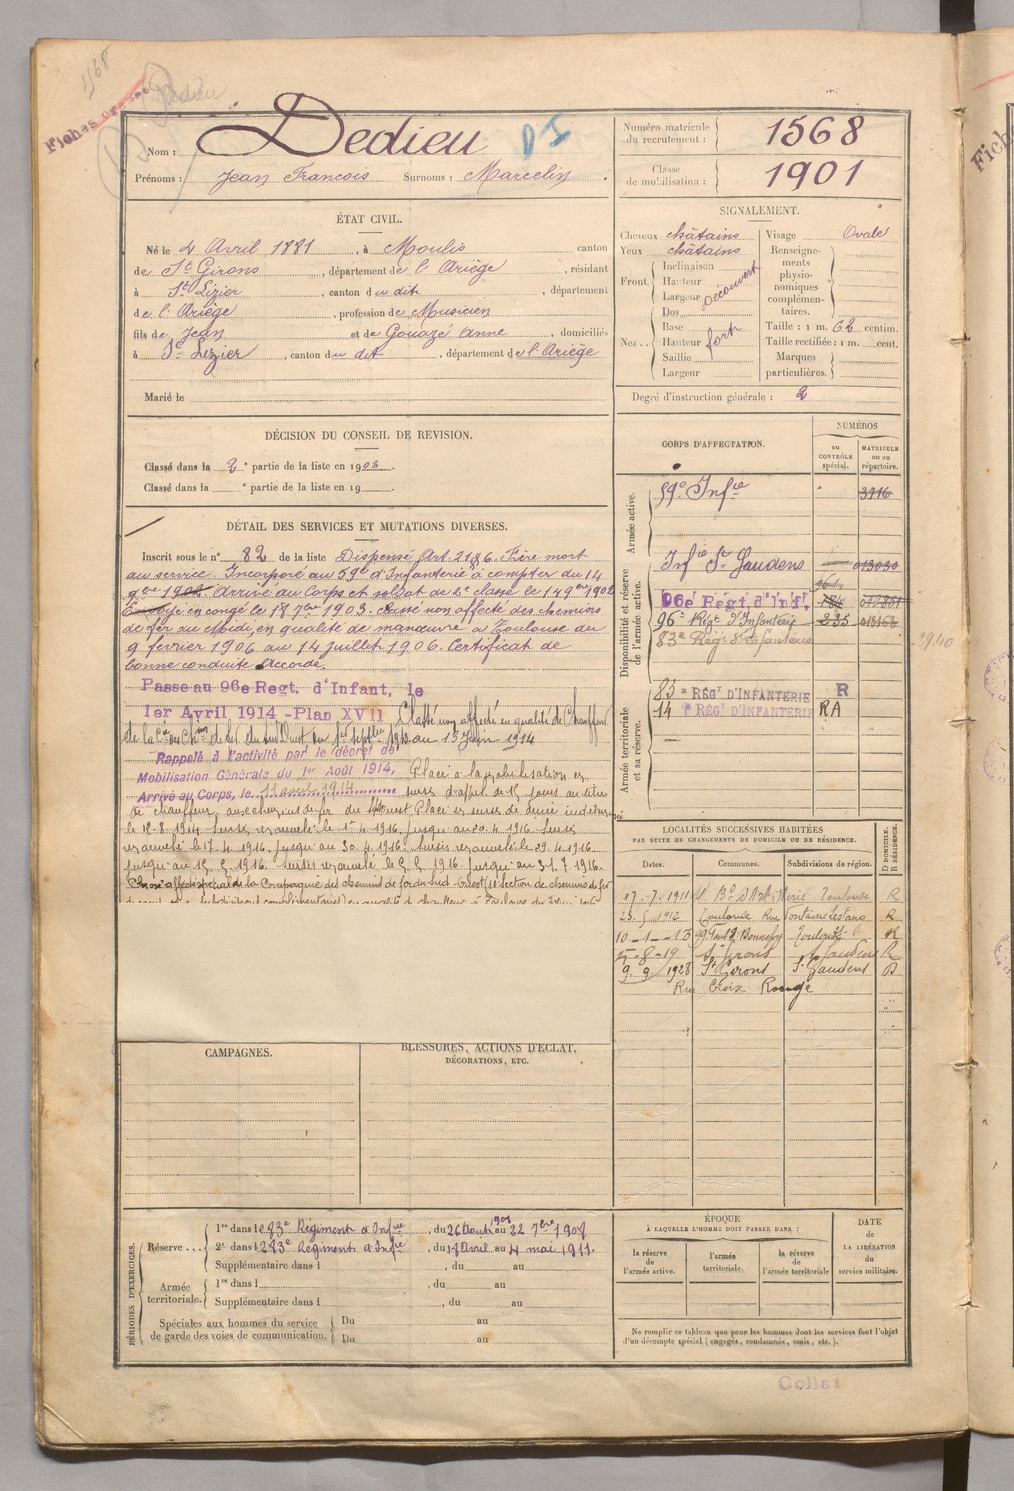 1568
Dedieu
Fiches
Nom : Dedieu
Prénoms : Jean Francois Surnoms : Marcelin
Numéro matricule du recrutement : 1568
Classe de mobilisation : 1901
ÉTAT CIVIL.
Né le 4 Avril 1881, à Moulis canton
de St Girons, département de l'Ariège, résidant
à St Lizier, canton du dit, département
de l'Ariège, profession de Musicien
fils de Jean et de Gouazé Anne, domiciliés
à St Lizier, canton du dit, département de l'Ariège
Marié le
SIGNALEMENT.
Cheveux châtains
Yeux châtains
Front. Inclinaison Hauteur Largeur découvert
Nez.. Dos Base Hauteur Saillie Largeur fort
Visage Ovale
Renseignements physionomiques complémentaires.
Taille : 1 m. 62 centim.
Taille rectifiée : 1 m. cent.
Marques particulières.
Degré d'instruction générale : 2
DÉCISION DU CONSEIL DE REVISION.
Classé dans la 2e partie de la liste en 1902.
Classé dans la e partie de la liste en 19
DÉTAIL DES SERVICES ET MUTATIONS DIVERSES.
Inscrit sous le n° 82 de la liste Dispensé Art. 21 § 6. Frère mort
au service. Incorporé au 59e d'Infanterie à compter du 14
9bre 1902 Arrivé au Corps et soldat de 2e classe le 14 9bre 1902
Envoyé en congé le 18 7bre 1903. Classé non affecté des chemins
de fer du Midi, en qualité de manœuvre à Toulouse du
9 février 1906 au 14 juillet 1906. Certificat de
bonne conduite Accordé.
Passe au 96e Regt. d'Infant. le
1er Avril 1914 - Plan XVII Classé non affecté en qualité de Chauffeur
de la Cie du Ch. de fer du au 13 Juin 1914
Rappelé à l'activité par le décret de
Mobilisation Générale du 1er Août 1914. Placé à la mobilisation en
Arrivé au Corps, le 11 août 1914 sursis d'appel de 15 jours au titre
de chauffeur aux chemins de fer du Placé en sursis de durée indéterminée
le 12-8-1914 Sursis renouvelé le 1-4-1916 jusqu'au 20.4.1916. Sursis
renouvelé le 17.4.1916 jusqu'au 30.4.1916. Sursis renouvelé le 29.4.1916
jusqu'au 15.5.1916. Sursis renouvelé le 5.5.1916 jusqu'au 31.7.1916.
Classé affecté spécial de la Compagnie des chemins de fer du Sud-Ouest
CORPS D'AFFECTATION.
NUMÉROS
AU CONTRÔLE spécial.
MATRICULE ou au répertoire.
Armée active.
59e Infie 3716
Disponibilité et réserve de l'armée active.
Infie St Gaudens 013030
96e Régt. d'Inf.
96e Régt d'Infanterie 235
83e Régt d'Infanterie
Armée territoriale et sa réserve.
83e RÉGt D'INFANTERIE R
14e RÉGt D'INFANTERIE RA
LOCALITÉS SUCCESSIVES HABITÉES
PAR SUITE DE CHANGEMENTS DE DOMICILE OU DE RÉSIDENCE.
Dates. Communes. Subdivisions de région. D DOMICILE. R RÉSIDENCE.
17-7-1911 Toulouse R
25-5-1912 Toulouse Rue R
10-1-13 Toulouse R
St Girons St Gaudens R
9.9/1928 St Girons St Gaudens D
Rue Croix Rouge
CAMPAGNES.
BLESSURES, ACTIONS D'ÉCLAT,
DÉCORATIONS, ETC.
PÉRIODES D'EXERCICES.
Réserve ... 1re dans le 83e Régiment d'Infie, du 26 Août 1907 au 22 7bre 1907
2e dans le 283e Régiment d'Infie, du 17 Avril au 4 mai 1911.
Supplémentaire dans l , du au
Armée territoriale. 1re dans l , du au
Supplémentaire dans l , du au
Spéciales aux hommes du service de garde des voies de communication. Du au
Du au
ÉPOQUE
À LAQUELLE L'HOMME DOIT PASSER DANS :
la réserve de l'armée active.
l'armée territoriale.
la réserve de l'armée territoriale
DATE DE LA LIBÉRATION du service militaire.
Ne remplir ce tableau que pour les hommes dont les services font l'objet
d'un décompte spécial (engagés, condamnés, omis, etc.).